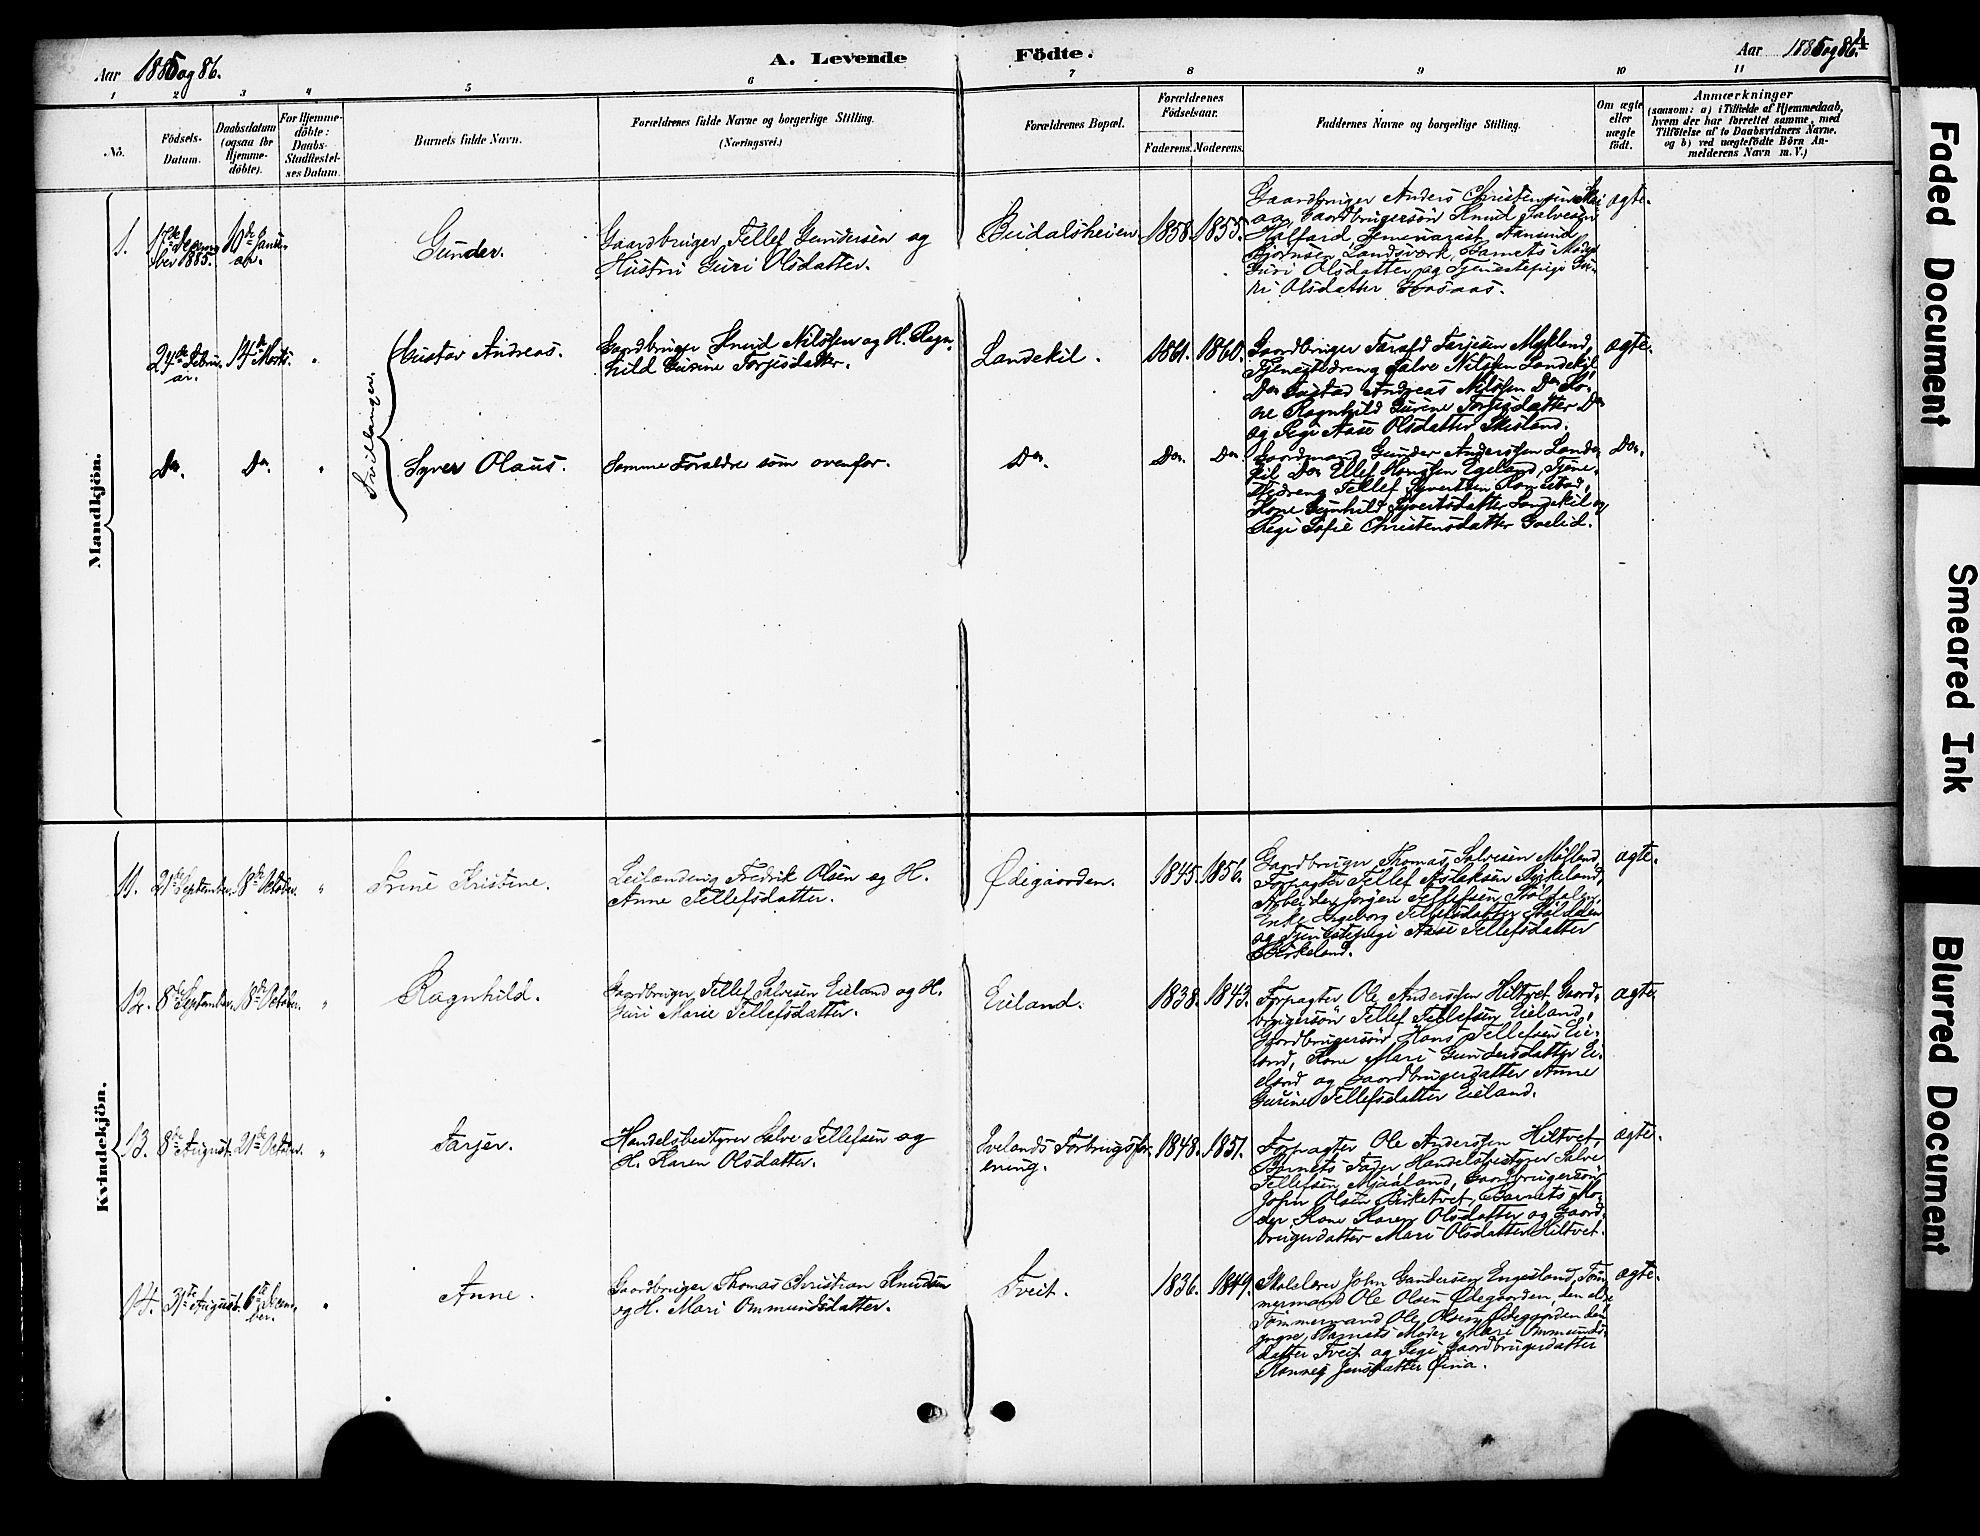 Aar 1885 og 86.
A. Levende Födte.
Aar 1885 og 86.
4
1 2 3 4 5 6 7 8 9 10 11
Nö.
Födsels-
Datum.
Daabsdatum
(ogsaa for
Hjemme-
döbte).
For Hjemme-
döbte:
Daabs-
Stadfæstel-
ses Datum.
Barnets fulde Navn.
Forældrenes fulde Navne og borgerlige Stilling.
(Næringsvei.)
Forældrenes Bopæl.
Forældrenes
Födselsaar.
Faderens. Moderens.
Faddernes Navne og borgerlige Stilling.
Om ægte
eller
uægte
födt.
Anmærkninger
(saasom: a) i Tilfælde af Hjemmedaab,
hvem der har forrettet samme, med
Tilföielse af to Daabsvidners Navne,
og b) ved uægtefödte Börn An-
melderens Navn m. V.)
Mandkjön.
1.
17de Decem-
ber 1885.
10de Janu-
ar.
Gunder.
Gaardbruger Tellef Gundersen og
Hustru Guri Olsdatter.
Beidalsheien
1858. 1855.
Gaardbruger Anders Christensen
og Gaardbrugersön Knud Salvesen
Aanund
Bjørnsen Landsværk, Barnets Moder
Guri Olsdatter og Tjenestepige Gu-
ri Olsdatter
ægte.
Tvillinger.
24de Febru-
ar.
14de Marts.
"
Gustav Andreas.
Gaardbruger Knud Nilssen og H. Ragn-
hild Gurine Torjusdatter.
Landekil.
1861. 1860.
Gaardbruger Tarald Tarjesen Mykland,
Tjenestedreng Salve Nilssen Landekil,
Do Gustav Andreas Nilssen Do Ko-
ne Ragnhild Gurine Torjusdatter Do
og Pige Aase Olsdatter
ægte.
Do.
Do.
"
Syver Olaus.
Samme Foraldre som ovenfor.
Do.
Do. Do.
Gaardmand Gunder Anderssen Lande-
kil Do Ellef Hanssen Egeland, Tjene-
stedreng Tellef Syvertsen
Kone Gunhild Syvertsdatter Landekil og
Pige Sofie Christensdatter
Do.
Kvindekjön.
11.
21de September.
18de October.
"
Trine Kristine.
Leilænding Fredrik Olsen og H.
Anne Tellefsdatter.
Ødegaarden.
1845. 1856.
Gaardbruger Thomas Salvesen
Forpagter Tellef Aslaksen Birkeland,
Arbeider Jørgen Tellefsen
Enke Ingeborg Tellefsdatter
og Tjenestepige Aase Tellefsdatter
Birkeland.
ægte.
12.
8de September.
18de October.
"
Ragnhild.
Gaardbruger Tellef Salvesen Eieland og H.
Guri Marie Tellefsdatter.
Eieland.
1838. 1843.
Forpagter Ole Anderssen Hiltvet, Gaard-
brugersön Tellef Tellefsen Eieland,
Gaardbrugersön Hans Tellefsen Eie-
land, Kone Mari Gundersdatter Ei-
eland og Gaardbrugerdatter Anne
Gurine Tellefsdatter Eieland.
ægte.
13.
8de August.
21de October.
"
Tarjer.
Handelsbestyrer Salve Tellefsen og
H. Karen Olsdatter.
Ivelands Forbrugsfor-
ening.
1848. 1851.
Forpagter Ole Anderssen Hiltvet,
Barnets Fader, Handelsbestyrer Salve
Tellefsen Mjaaland, Gaardbrugersön
John Olsen Birketvet, Barnets Mo-
der Kone Karen Olsdatter og Gaard-
brugerdatter Mari Olsdatter Hiltvet.
ægte.
14.
31te August.
6te
ber.
"
Anne.
Gaardbruger Thomas Christian Knudsen
og H. Mari Ommundsdatter.
Tveit.
1836. 1849.
Skolelærer John Gundersen Engesland, Tøm-
mermand Ole Olsen Ødegaarden, den eldre
Tømmermand Ole Olsen Ødegaarden den
yngre, Barnets Moder Mari Ommunds-
datter Tveit og Pige, Gaardbrugerdatter
Jensdatter
ægte.
Faded Document
Smeared Ink
Blurred Document